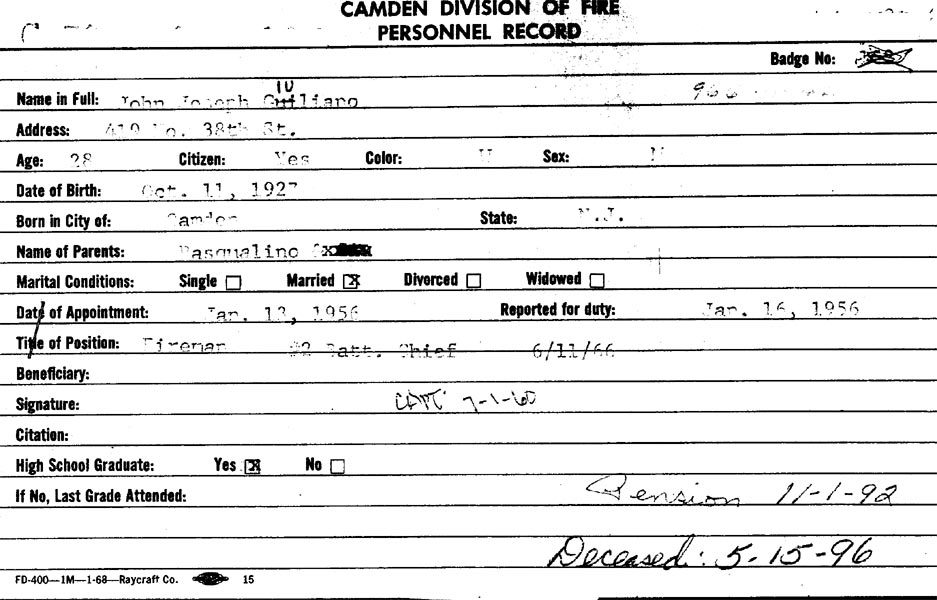 CAMDEN DIVISION OF FIRE
PERSONNEL RECORD
Badge No:
IU
Name in Full: John Joseph Guiliano 966
Address: 419 No. 38th St.
Age: 28 Citizen: Yes Color: Sex:
Date of Birth: Oct. 11, 1927
Born in City of: Camden State: N.J.
Name of Parents: Pasqualino
Marital Conditions: Single Married X Divorced Widowed
Date of Appointment: Jan. 13, 1956 Reported for duty: Jan. 16, 1956
Title of Position: Fireman #2 Batt. Chief 6/11/66
Beneficiary:
Signature: CAPT. 7-1-60
Citation:
High School Graduate: Yes X No
If No, Last Grade Attended: Pension 11-1-92
Deceased: 5-15-96
FD-400—1M—1-68—Raycraft Co. 15